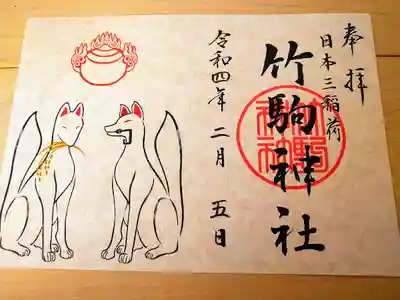 奉拝
日本三稲荷
竹駒神社
令和四年二月五日